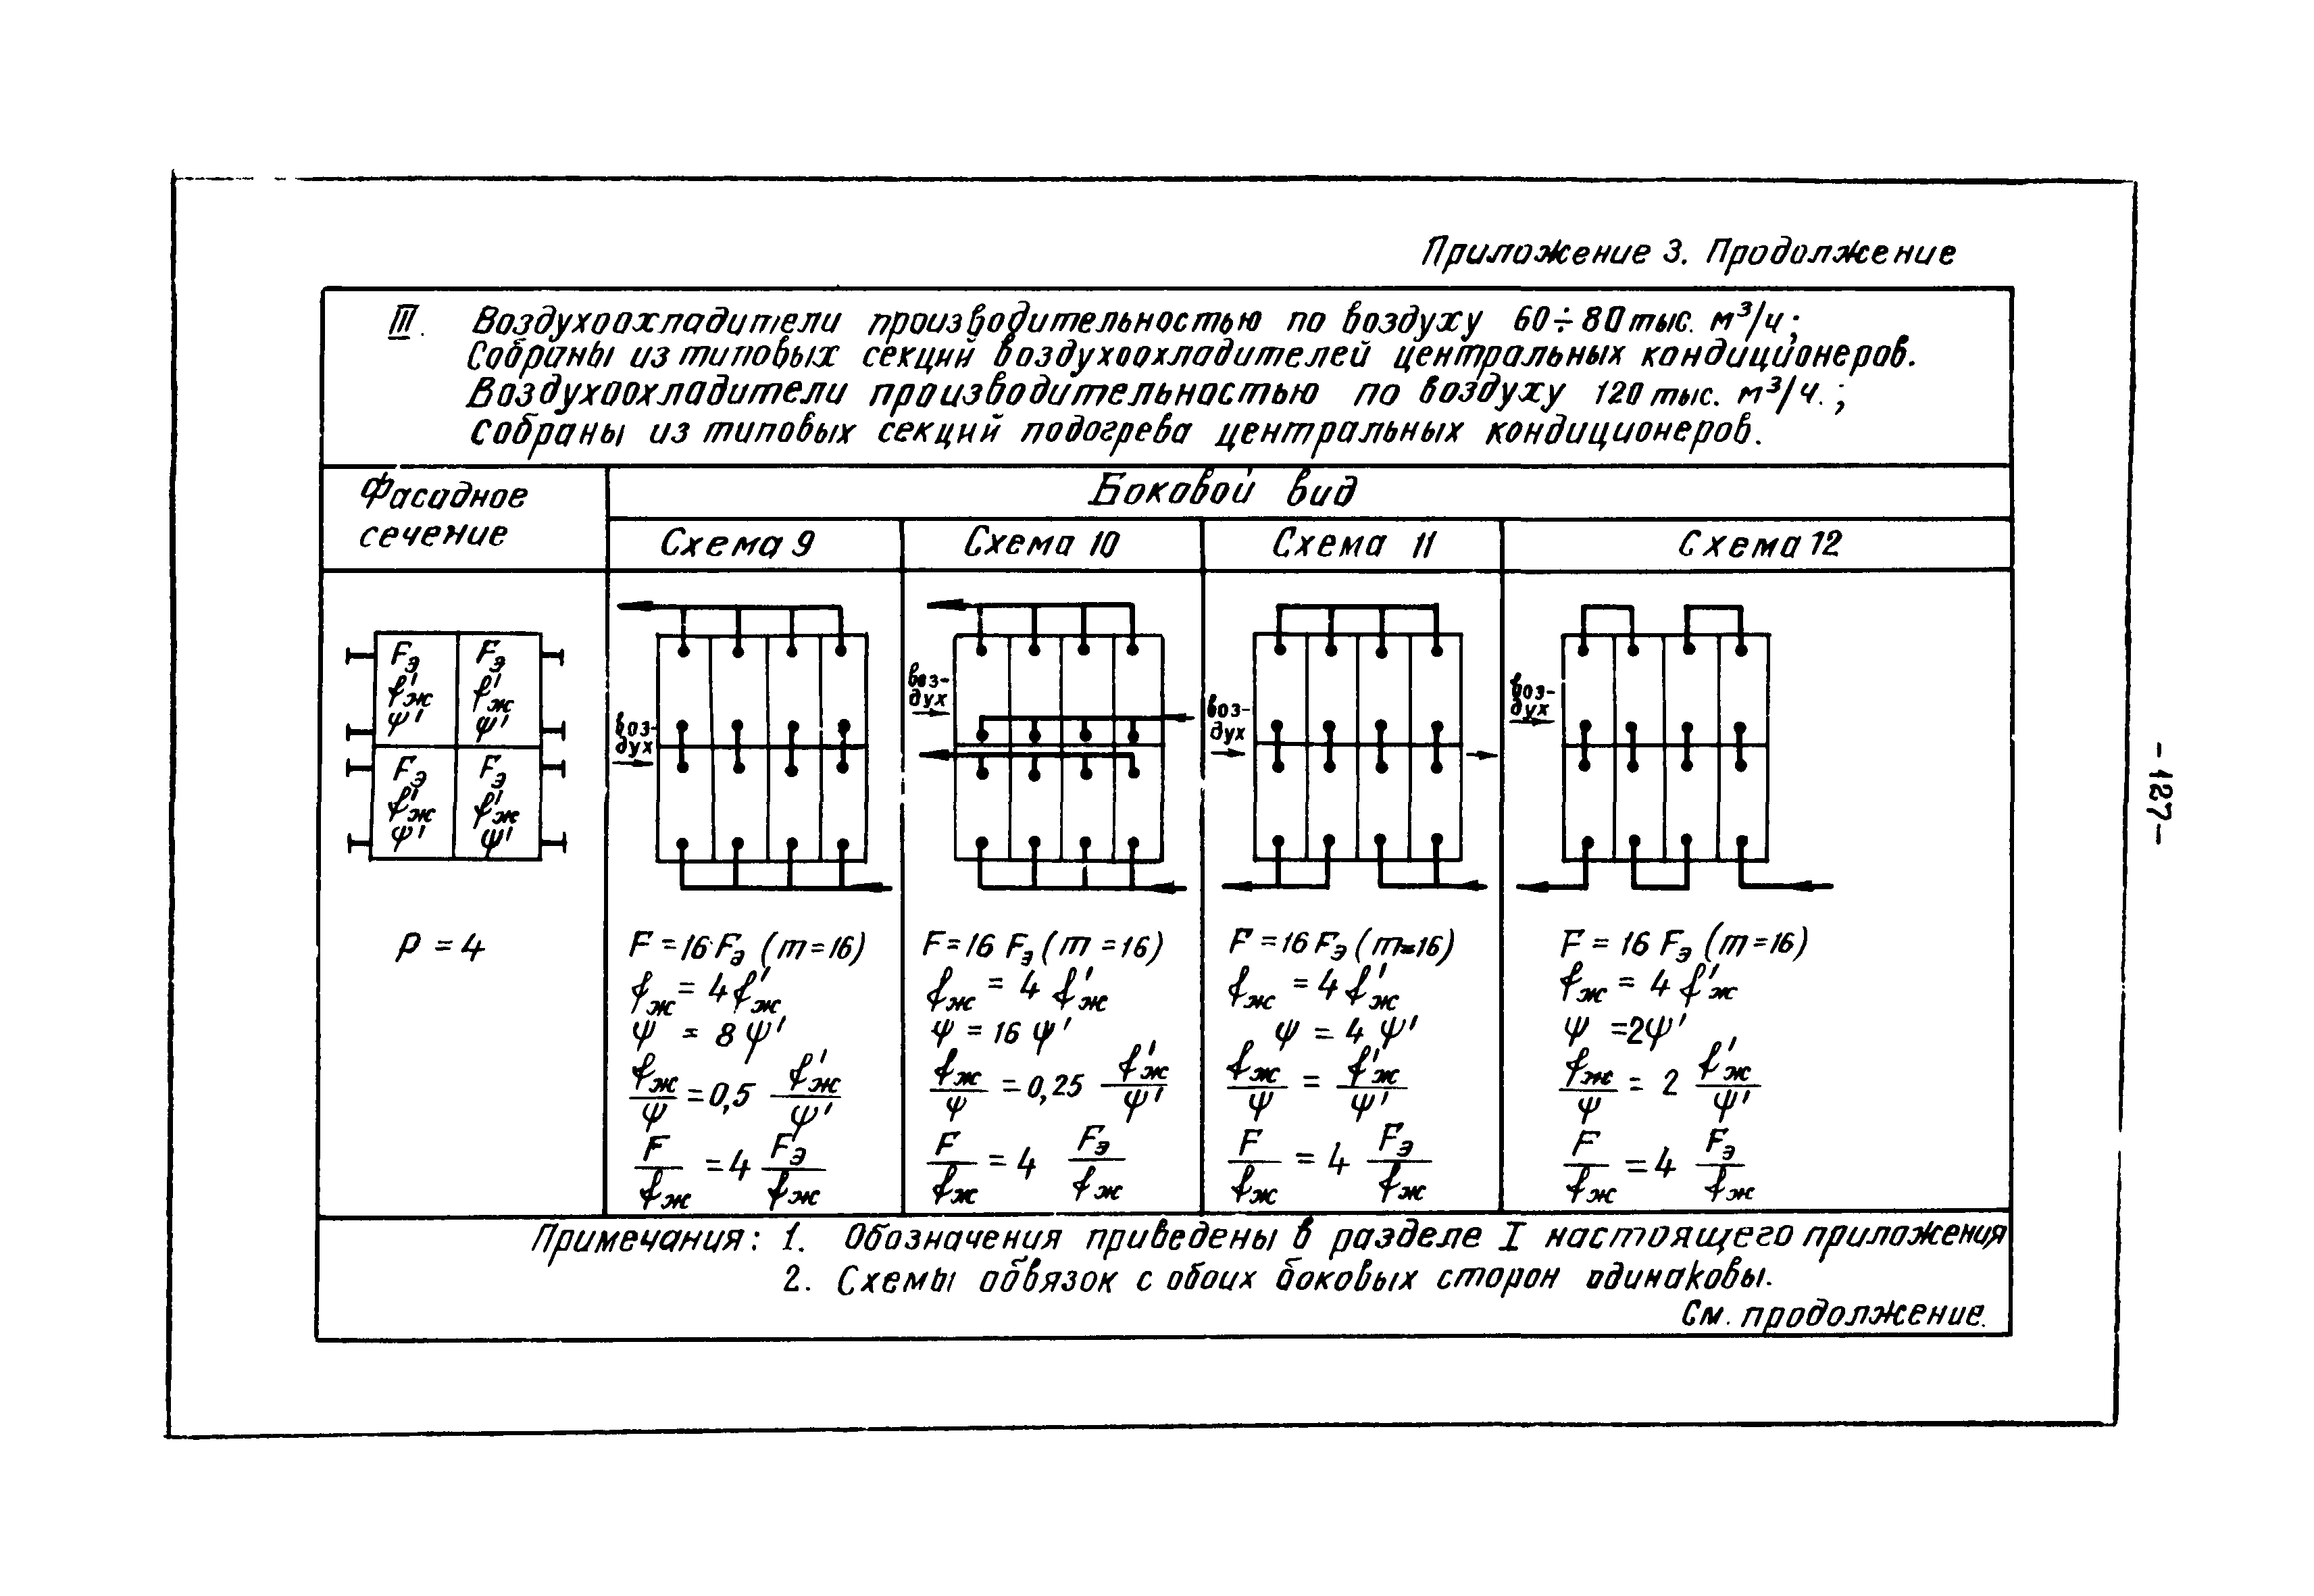 Приложение 3. Продолжение
III. Воздухоохладители производительностью по воздуху 60÷80 тыс. м³/ч;
Собраны из типовых секций воздухоохладителей центральных кондиционеров.
Воздухоохладители производительностью по воздуху 120 тыс. м³/ч.;
собраны из типовых секций подогрева центральных кондиционеров.
Фасадное
сечение
Боковой вид
Схема 9
Схема 10
Схема 11
Схема 12
Fэ Fэ
f'ж f'ж
ψ' ψ'
Fэ Fэ
f'ж f'ж
ψ' ψ'
P = 4
воз-
дух
F = 16 Fэ (m = 16)
fж = 4 f'ж
ψ = 8 ψ'
fж/ψ = 0,5 f'ж/ψ'
F/fж = 4 Fэ/fж
воз-
дух
F = 16 Fэ (m = 16)
fж = 4 f'ж
ψ = 16 ψ'
fж/ψ = 0,25 f'ж/ψ'
F/fж = 4 Fэ/fж
воз-
дух
F = 16 Fэ (m = 16)
fж = 4 f'ж
ψ = 4 ψ'
fж/ψ = f'ж/ψ'
F/fж = 4 Fэ/fж
воз-
дух
F = 16 Fэ (m = 16)
fж = 4 f'ж
ψ = 2ψ'
fж/ψ = 2 f'ж/ψ'
F/fж = 4 Fэ/fж
Примечания: 1. Обозначения приведены в разделе I настоящего приложения
2. Схемы обвязок с обоих боковых сторон одинаковы.
См. продолжение.
-127-